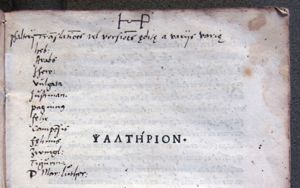 psalterij Translationes vel versiones ędite a varijs varię
heb:
Arabs
Vulgata
Justinian.
pagning
felix
Campensis
Zwingl:
Tigurina
D. Mar: Luther.
ΨΑΛΤΗΡΙΟΝ.